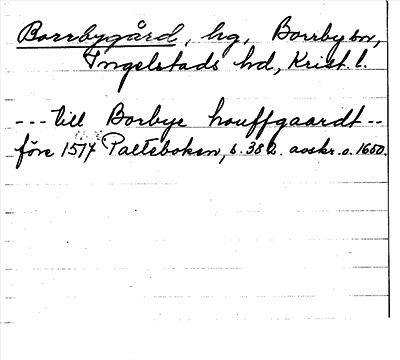 Borrbygård, hg, Borrby sn,
Ingelstads hd, Krist. l.
--- till Borbye houffgaardt --
före 1514 Palteboken, s. 382. avskr. o. 1650.